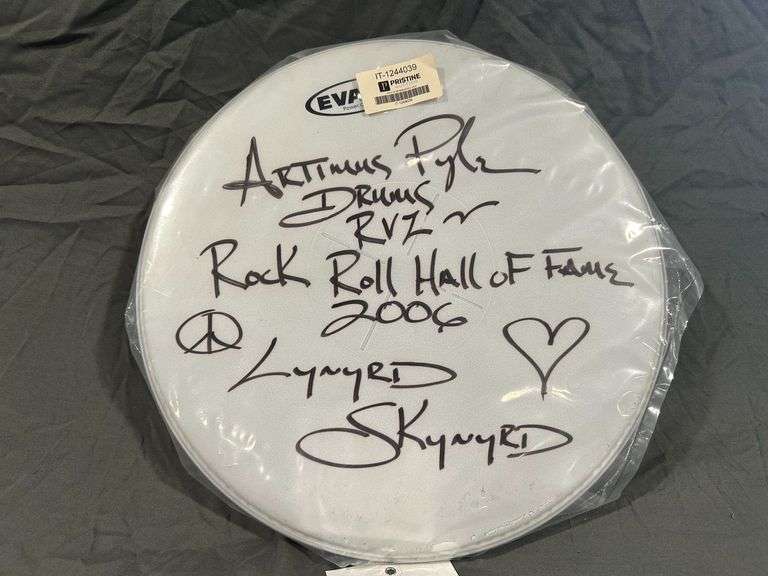 IT-1244039
PRISTINE
EVA
Artimus Pyle
Drums
RVZ
Rock Roll Hall of Fame
2006
Lynyrd
Skynyrd